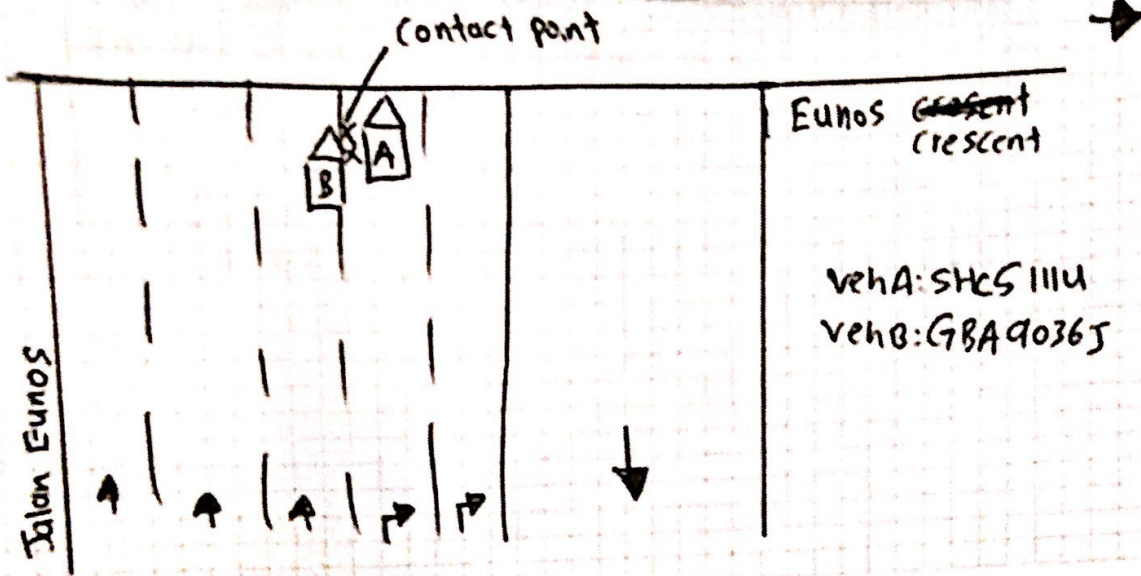 contact point
Eunos crescent
crescent
A
B
vehA: SHC5111U
vehB: GBA9036J
Jalan Eunos